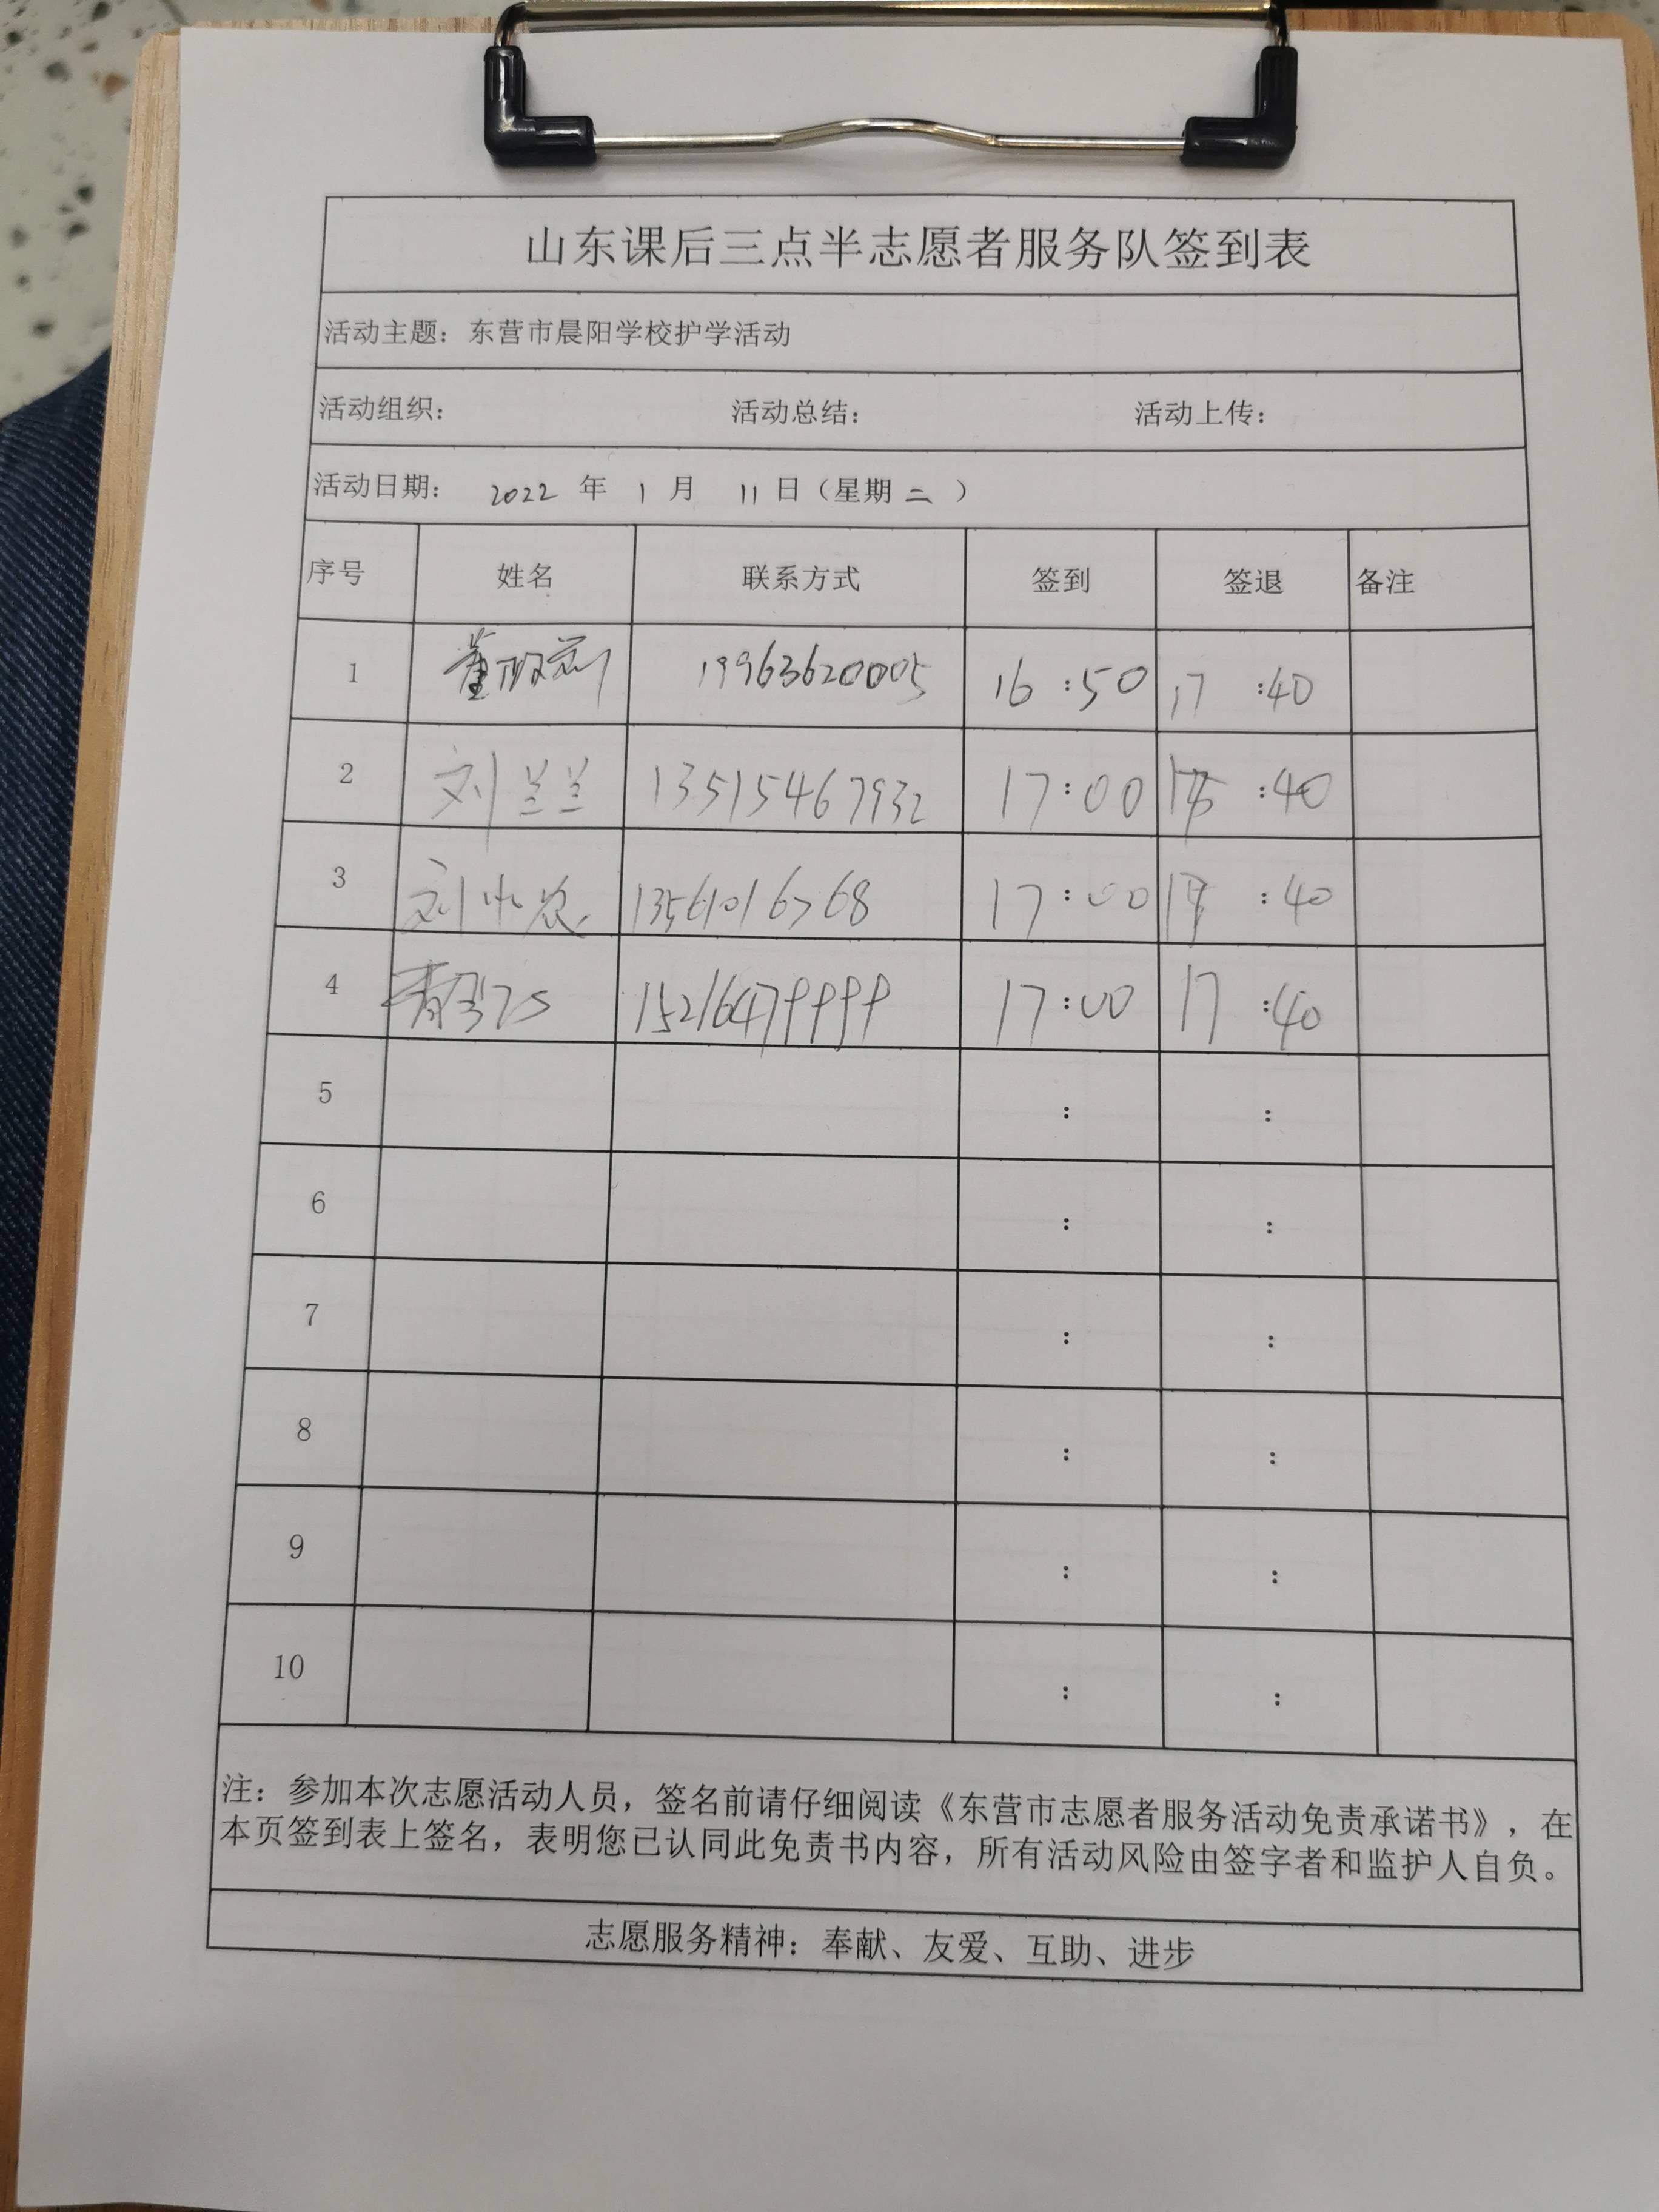 山东课后三点半志愿者服务队签到表
活动主题：东营市晨阳学校护学活动
活动组织： 活动总结： 活动上传：
活动日期： 2022 年 1 月 11 日（星期 二 ）
序号 姓名 联系方式 签到 签退 备注
1 19963620005 16 :50 17 :40
2 刘兰兰 13515467932 17:00 :40
3 刘 13561016768 17:00 :40
4 15216479999 17:00 17 :40
5 : :
6 : :
7 : :
8 : :
9 : :
10 : :
注：参加本次志愿活动人员，签名前请仔细阅读《东营市志愿者服务活动免责承诺书》，在
本页签到表上签名，表明您已认同此免责书内容，所有活动风险由签字者和监护人自负。
志愿服务精神：奉献、友爱、互助、进步